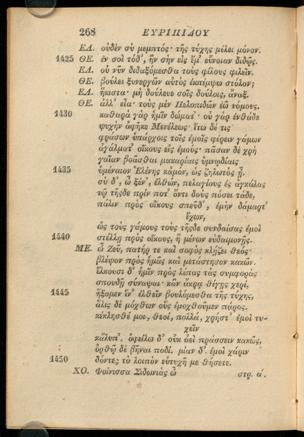 268 ΕΥΡΙΠΙΔΟΥ
ΕΛ. οὐδὲν σὺ μεμπτός· τῆς τύχης μέλει μόνον.
1425 ΘΕ. ἐν σοὶ τάδ', ἢν σὴν εἰς ἔμ' εὔνοιαν διδῷς.
ΕΛ. οὐ νῦν διδαξόμεσθα τοὺς φίλους φιλεῖν.
ΘΕ. βούλει ξυνεργῶν αὐτὸς ἐκπέμψω στόλον;
ΕΛ. ἥκιστα· μὴ δούλευε σοῖς δούλοις, ἄναξ.
ΘΕ. ἀλλ' εἶα· τοὺς μὲν Πελοπιδῶν ἐῶ νόμους.
1430 καθαρὰ γὰρ ἡμῖν δώματ'· οὐ γὰρ ἐνθάδε
ψυχὴν ἀφῆκε Μενέλεως· ἴτω δέ τις
φράσων ὑπάρχοις τοῖς ἐμοῖς φέρειν γάμων
ἀγάλματ' οἴκους εἰς ἐμούς· πᾶσαν δὲ χρὴ
γαῖαν βοᾶσθαι μακαρίαις ὑμνῳδίαις
1435 ὑμέναιον Ἑλένης κἀμόν, ὡς ζηλωτὸς ᾖ.
σὺ δ', ὦ ξέν', ἐλθών, πελαγίους ἐς ἀγκάλας
τῷ τῆσδε πρίν ποτ' ὄντι δοὺς πόσει τάδε,
πάλιν πρὸς οἴκους σπεῦδ', ἐμὴν δάμαρτ'
ἔχων,
ὡς τοὺς γάμους τοὺς τῆσδε συνδαίσας ἐμοὶ
1440 στέλλῃ πρὸς οἴκους, ἢ μένων εὐδαιμονῇς.
ΜΕ. ὦ Ζεῦ, πατήρ τε καὶ σοφὸς κλῄζει θεός·
βλέψον πρὸς ἡμᾶς καὶ μετάστησον κακῶν.
ἕλκουσι δ' ἡμῖν πρὸς λέπας τὰς συμφορὰς
σπουδῇ σύναψαι· κἂν ἄκρᾳ θίγῃς χερί,
1445 ἥξομεν ἵν' ἐλθεῖν βουλόμεσθα τῆς τύχης.
ἅλις δὲ μόχθων οὓς ἐμοχθοῦμεν πάρος.
κέκλησθέ μοι, θεοί, πολλά, χρήστ' ἐμοῦ κ-
χεῖν
καλυπ'. ὀφείλω δ' οὐκ ἀεὶ πράσσειν κακῶς,
ὀρθῷ δὲ βῆναι ποδί. μίαν δ' ἐμοὶ χάριν
1450 δόντες τὸ λοιπὸν εὐτυχῆ με θήσετε.
ΧΟ. Φοίνισσα Σιδωνιὰς ὦ στρ. ά.